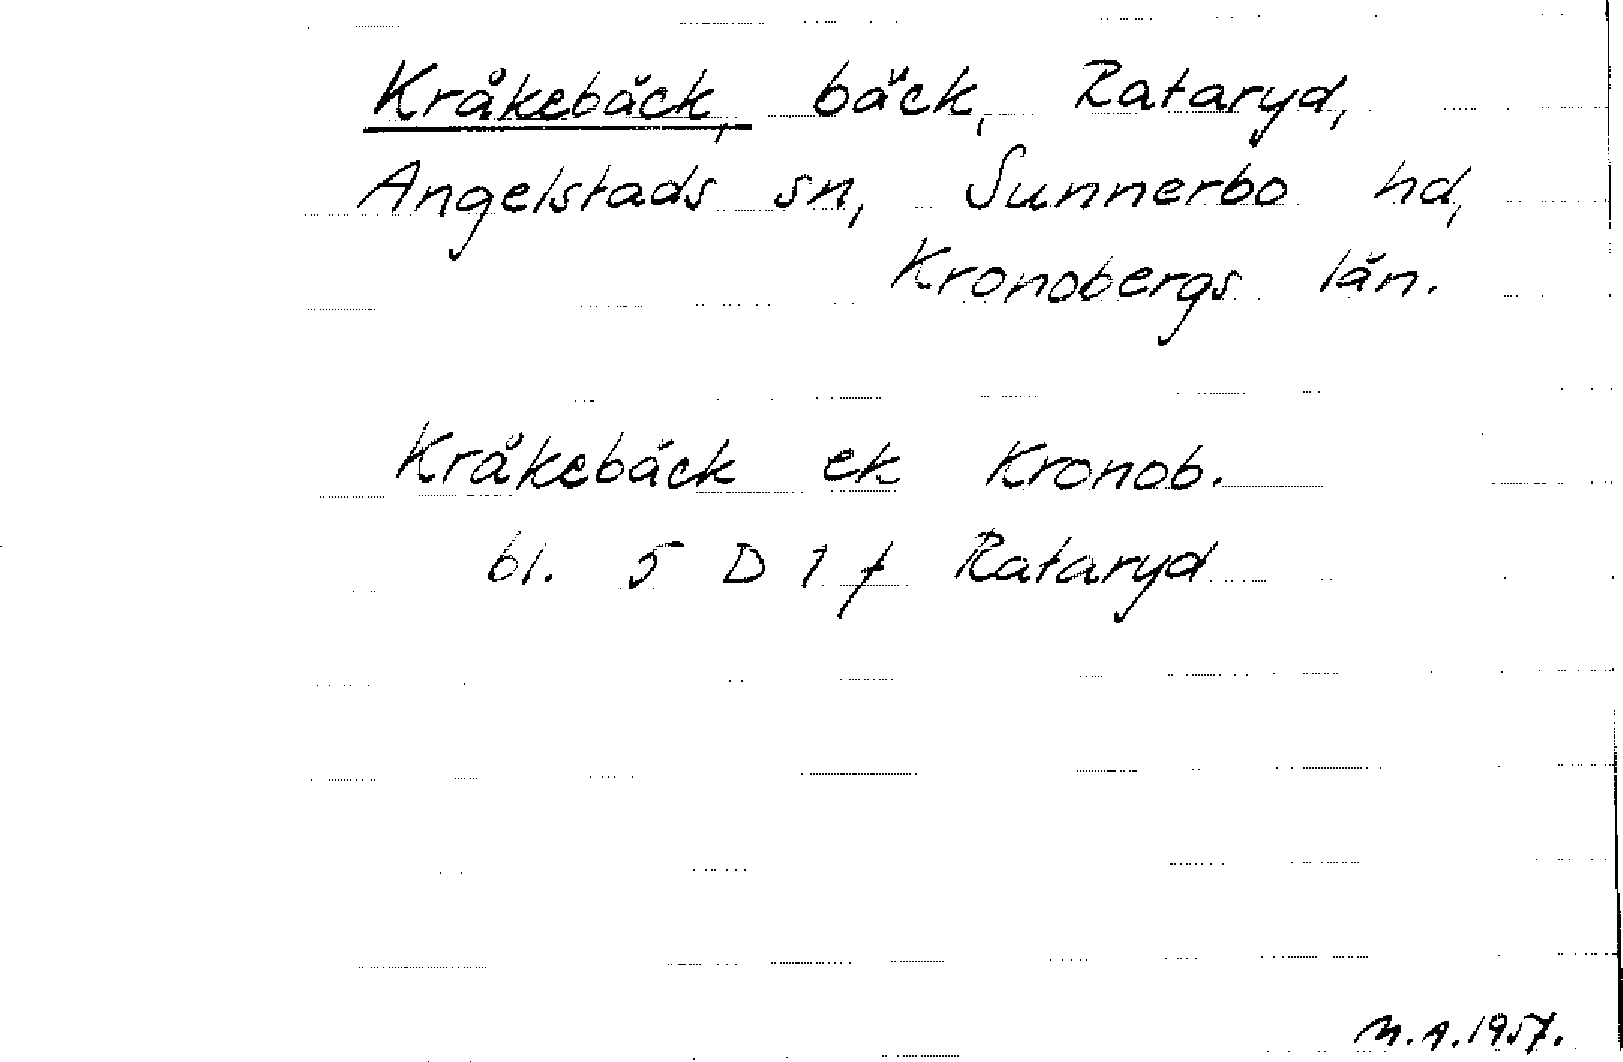 Kråkebäck, bäck, Rataryd,
Angelstads sn, Sunnerbo hd,
Kronobergs län.
Kråkebäck ek Kronob.
bl. 5 D 1 f Rataryd
M.A. 1957.